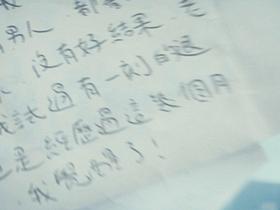 男人 都
沒有好結果,老
試過有一刻的退
是經歷過這幾個月
我
了!